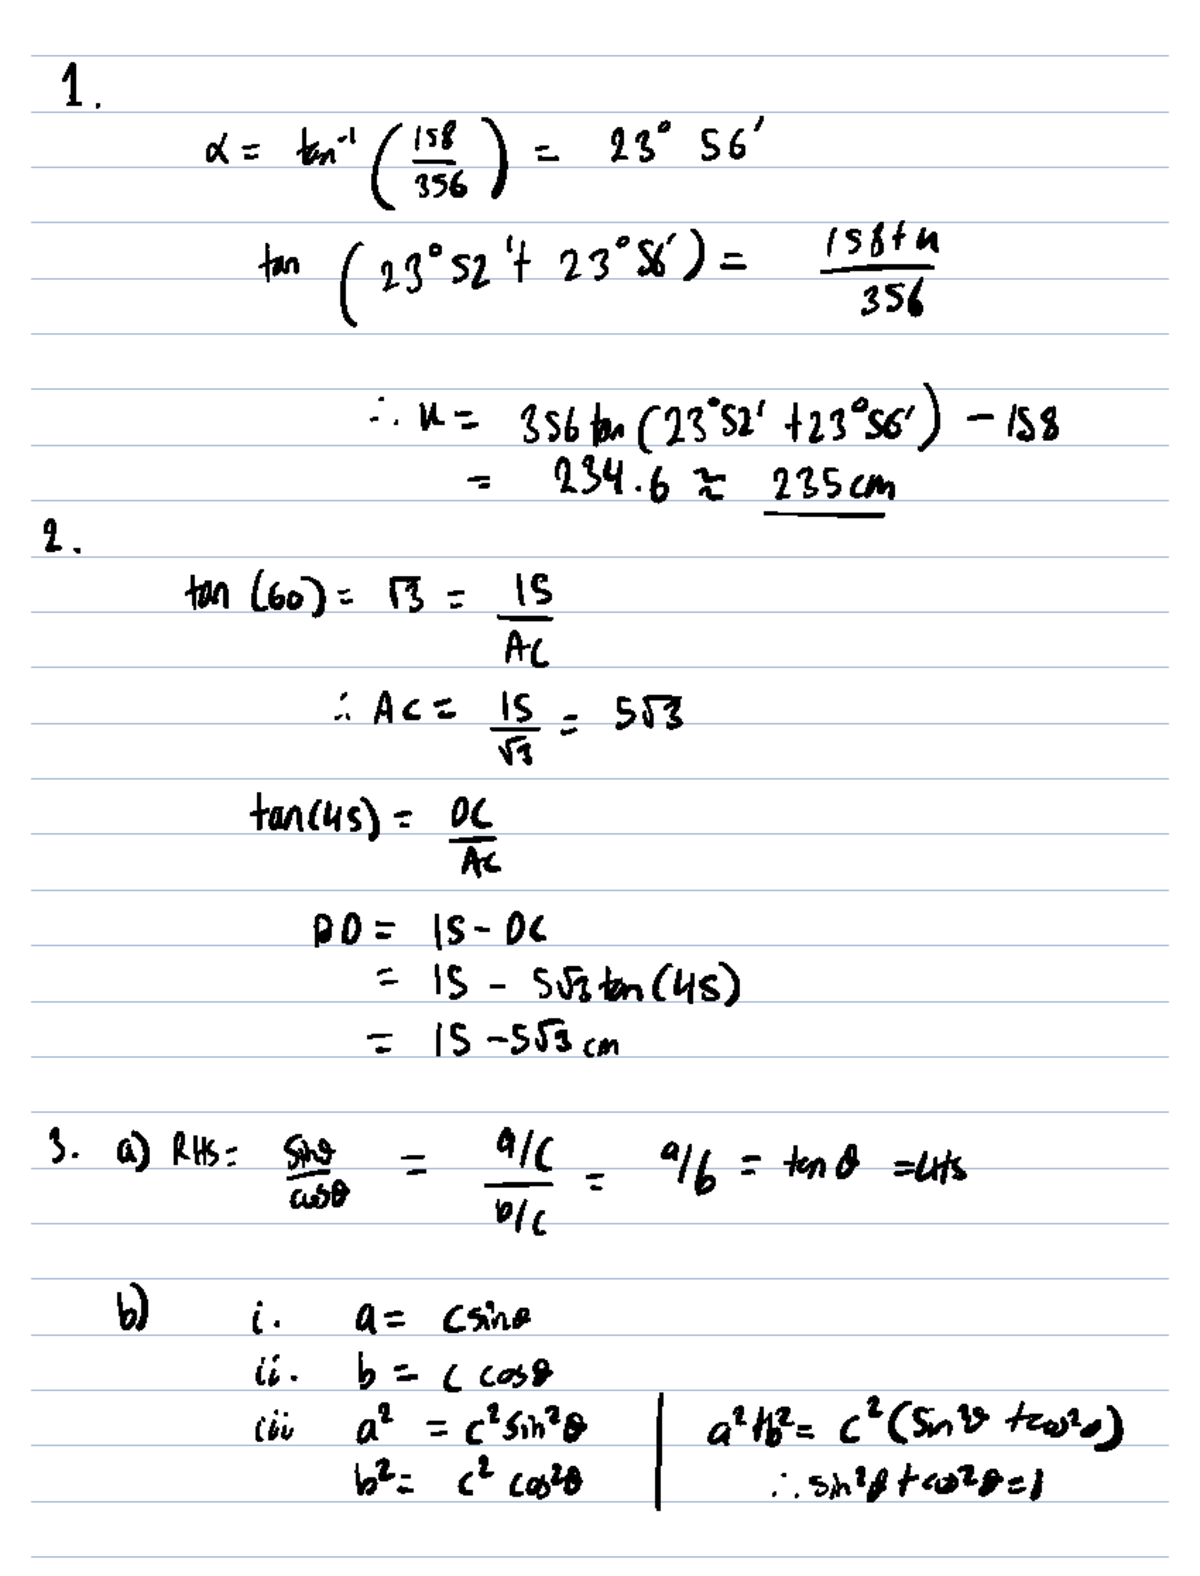 1.
α = tan⁻¹ (158/356) = 23° 56'
tan (23°52' + 23°56') = (158+x)/356
∴ x = 356 tan (23°52' + 23°56') - 158
= 234.6 ≈ 235 cm
2.
tan (60) = √3 = 15/AC
∴ AC = 15/√3 = 5√3
tan(45) = DC/AC
BD = 15 - DC
= 15 - 5√3 tan (45)
= 15 - 5√3 cm
3. a) RHS = sinθ/cosθ = (a/c)/(b/c) = a/b = tan θ = LHS
b) i. a = c sinθ
ii. b = c cosθ
iii a² = c² sin²θ | a² + b² = c² (sin²θ + cos²θ)
b² = c² cos²θ | ∴ sin²θ + cos²θ = 1